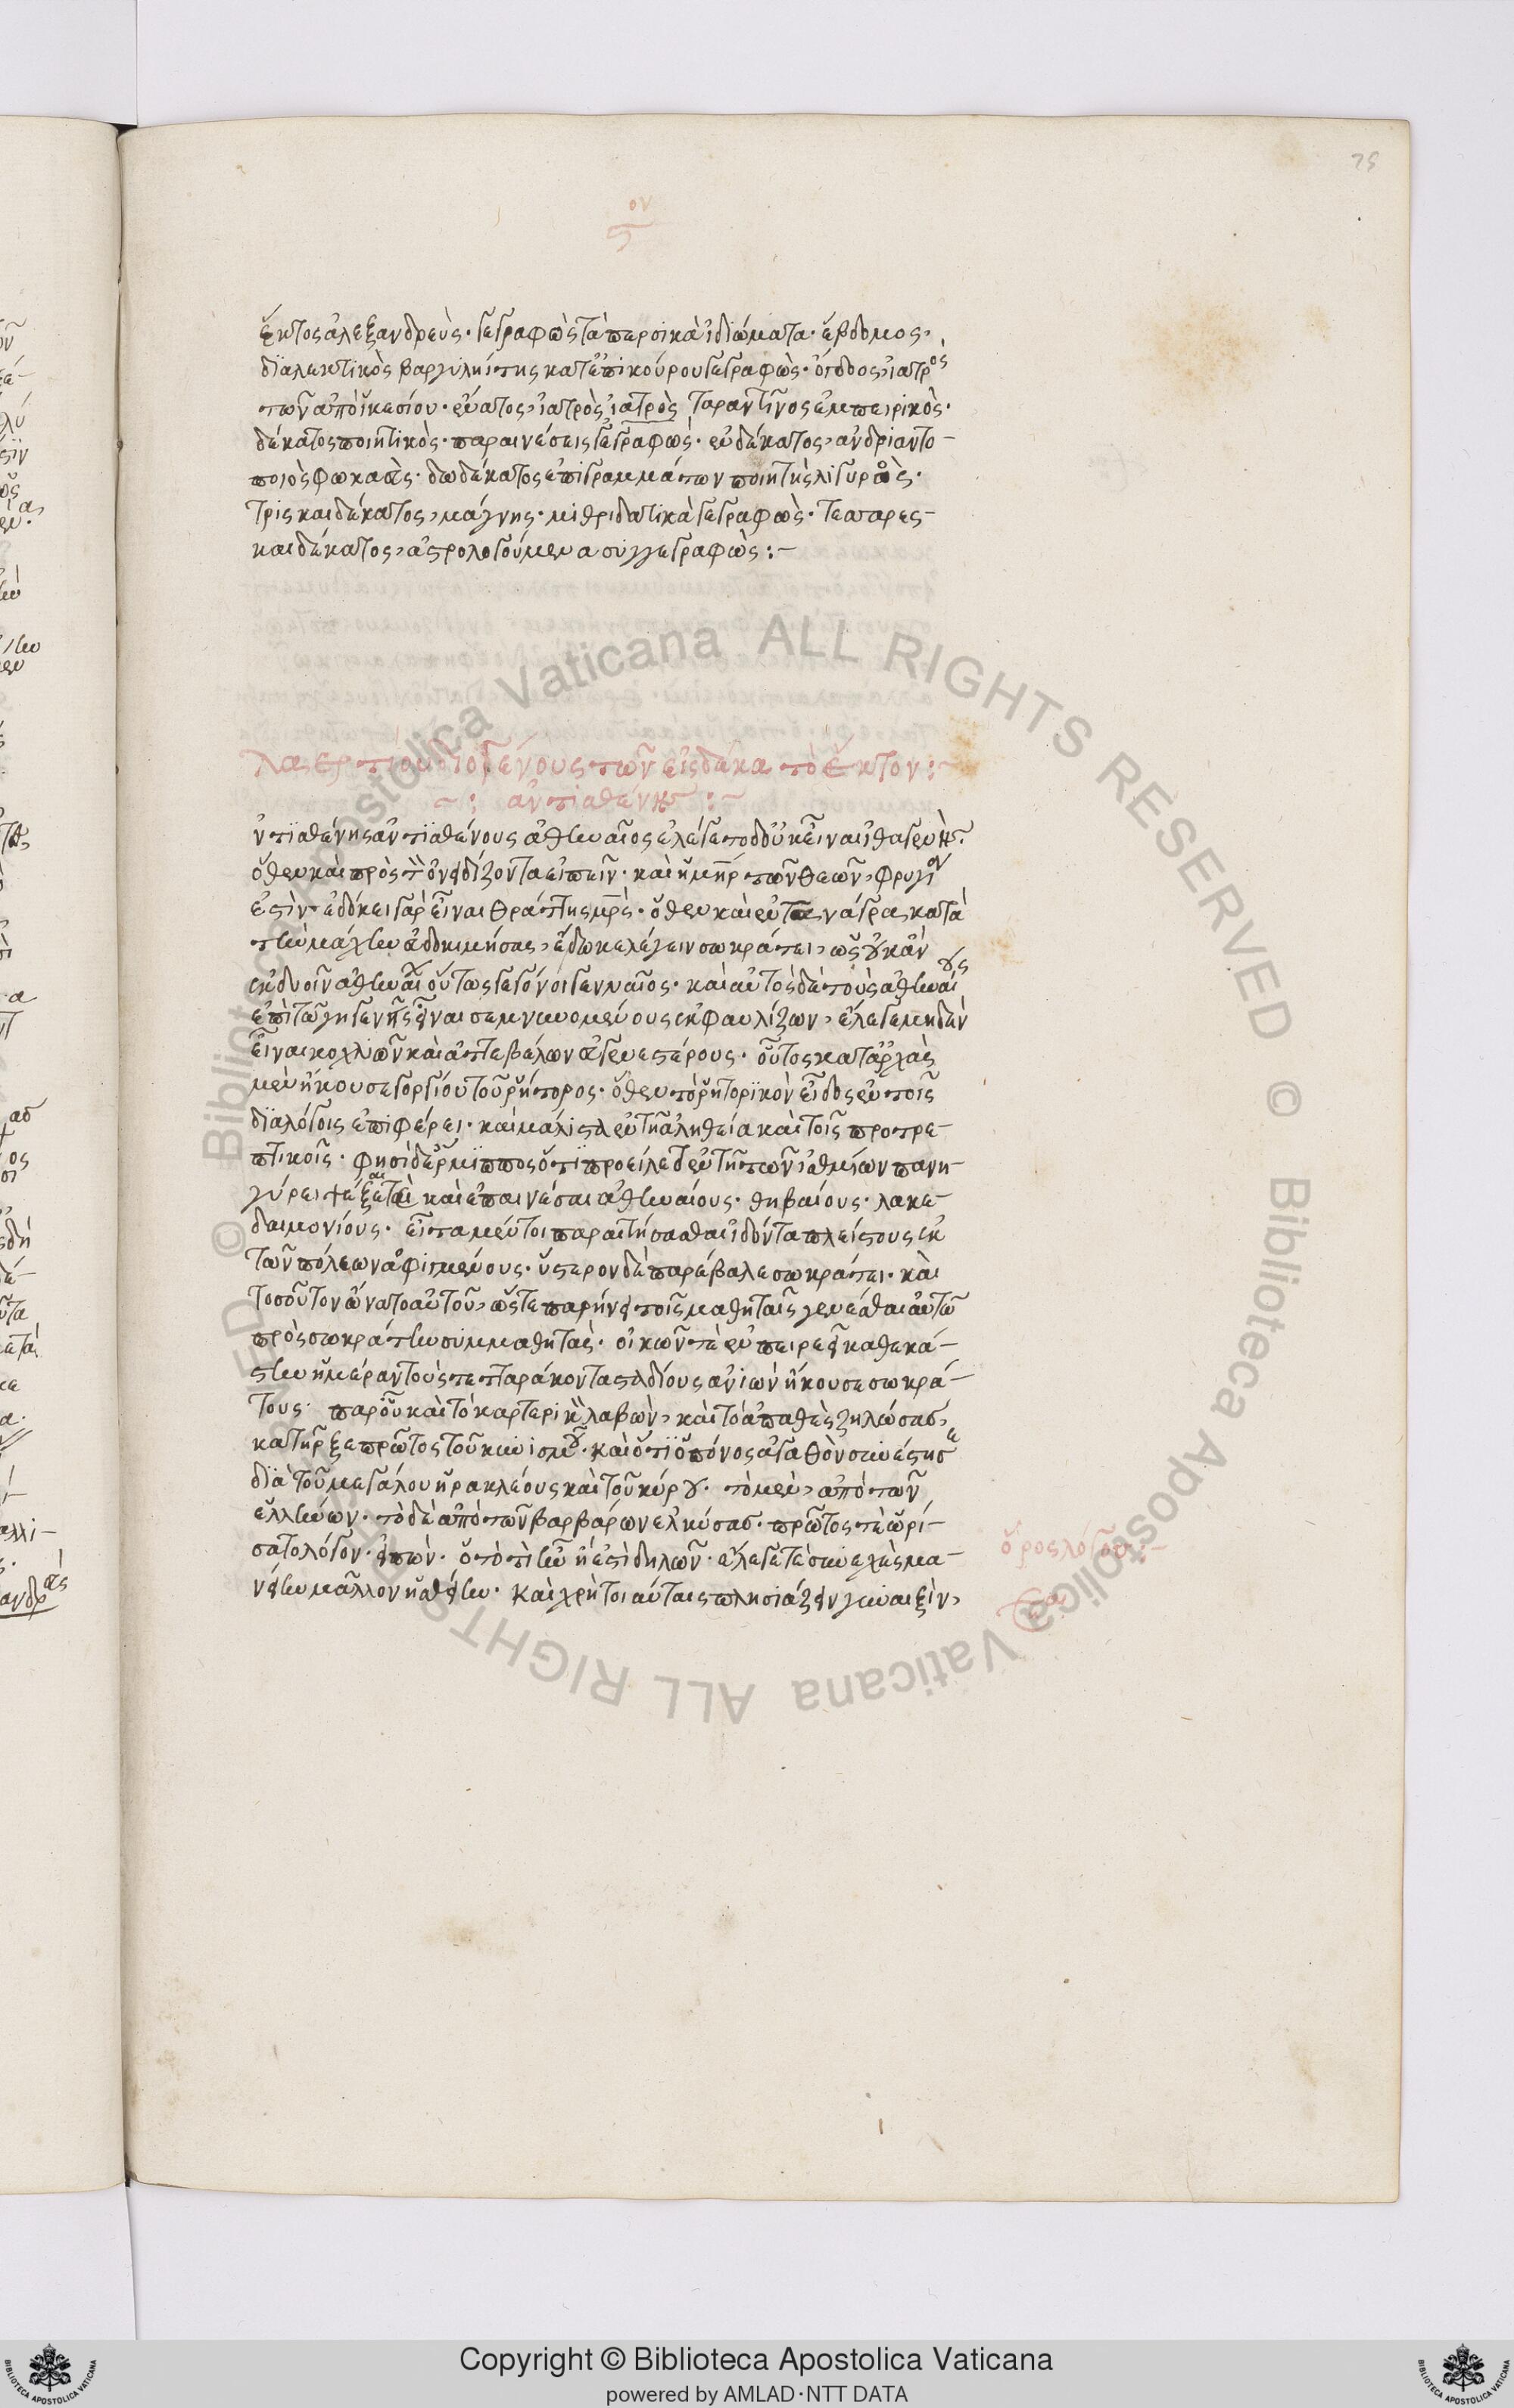 75
ϛον
ἕκτος ἀλεξανδρεὺς· γεγραφὼς τὰ περσικὰ ἰδιώματα· ἕβδομος,
διαλεκτικὸς βαργυληίτης κατ' ἐπικούρου γεγραφὼς· ὄγδοος, ἰατρὸς
τῶν ἀπὸ ἱκεσίου· ἔνατος, ἰατρὸς ἰατρὸς ταραντῖνος ἐμπειρικὸς·
δέκατος ποιητικὸς· παραινέσεις γεγραφώς· ἐνδέκατος, ἀνδριαντο-
ποιὸς φωκαεὺς· δωδέκατος ἐπιγραμμάτων ποιητὴς λιγυρὸς·
τρισκαιδέκατος, μάγνης· μιθριδατικὰ γεγραφὼς· τεσσαρες-
καιδέκατος, ἀστρολογούμενα συγγεγραφὼς :-
λαερτίου διογένους τῶν εἰς δέκα τὸ ἕκτον :~
~: ἀντισθένης :~
ντισθένης ἀντισθένους ἀθηναῖος ἐλέγετο δ' οὐκ εἶναι ἰθαγενής.
ὅθεν καὶ πρὸς τὸν ὀνειδίζοντα εἰπεῖν· καὶ ἡ μηρ τῶν θεῶν, φρυγία
ἐστὶν· ἐδόκει γὰρ εἶναι θράττης μρς· ὅθεν καὶ ἐν τανάγρα κατὰ
τὴν μάχην εὐδοκιμήσας, ἔδωκε λέγειν σωκράτει, ὡς οὐκ ἂν
ἐκ δυοῖν ἀθηναίων οὕτως γεγόνοι γενναῖος· καὶ αὐτὸς δὲ τοὺς ἀθηναίους
ἐπὶ τῷ γηγενεῖς εἶναι σεμνυνομένους ἐκφαυλίζων, ἔλεγε μηδὲν
εἶναι κοχλιῶν καὶ ἀττελέβων εὐγενεστέρους· οὗτος κατ' ἀρχὰς
μὲν ἤκουσε γοργίου τοῦ ῥήτορος· ὅθεν τὸ ῥητορικὸν εἶδος ἐν τοῖς
διαλόγοις ἐπιφέρει· καὶ μάλιστα ἐν τῇ ἀληθεία καὶ τοῖς προτρε-
πτικοῖς· φησὶ δ' ἕρμιππος ὅτι προείλετο ἐν τῇ τῶν ἰσθμίων πανη-
γύρει ψέξαι τε καὶ ἐπαινέσαι ἀθηναίους· θηβαίους· λακε-
δαιμονίους· εἶτα μέντοι παραιτήσασθαι ἰδόντα πλείστους ἐκ
τῶν πόλεων ἀφιγμένους· ὕστερον δὲ παρέβαλε σωκράτει· καὶ
τοσοῦτον ὤνατο αὐτοῦ, ὥστε παρήνει τοῖς μαθηταῖς γενέσθαι αὐτῷ
πρὸς σωκράτην συμμαθητὰς· οἰκῶν τὲ ἐν πειρεεῖ καθ' ἑκά-
στην ἡμέραν τοὺς τετταράκοντα σταδίους ἀνιὼν ἤκουσε σωκρά-
τους· παρ' οὗ καὶ τὸ καρτερικὸν λαβὼν, καὶ τὸ ἀπαθὲς ζηλώσας,
κατῆρξε πρῶτος τοῦ κυνισμοῦ· καὶ ὅτι ὁ πόνος ἀγαθὸν συνέστησε
διὰ τοῦ μεγάλου ἡρακλέους καὶ τοῦ κύρου· τὸ μὲν, ἀπὸ τῶν
ἑλλήνων· τὸ δὲ ἀπὸ τῶν βαρβάρων ἑλκύσας· πρῶτος τὲ ὡρί-
σατο λόγον· εἰπών· ὁ τὸ τί ἦν ἢ ἔστι δηλῶν· ἔλεγέ τε συνεχὲς μα-
νείην μᾶλλον ἢ ἡσθείην· καὶ χρὴ τοιαύταις πλησιάζειν γυναιξὶν,
ὅρος λόγου :-